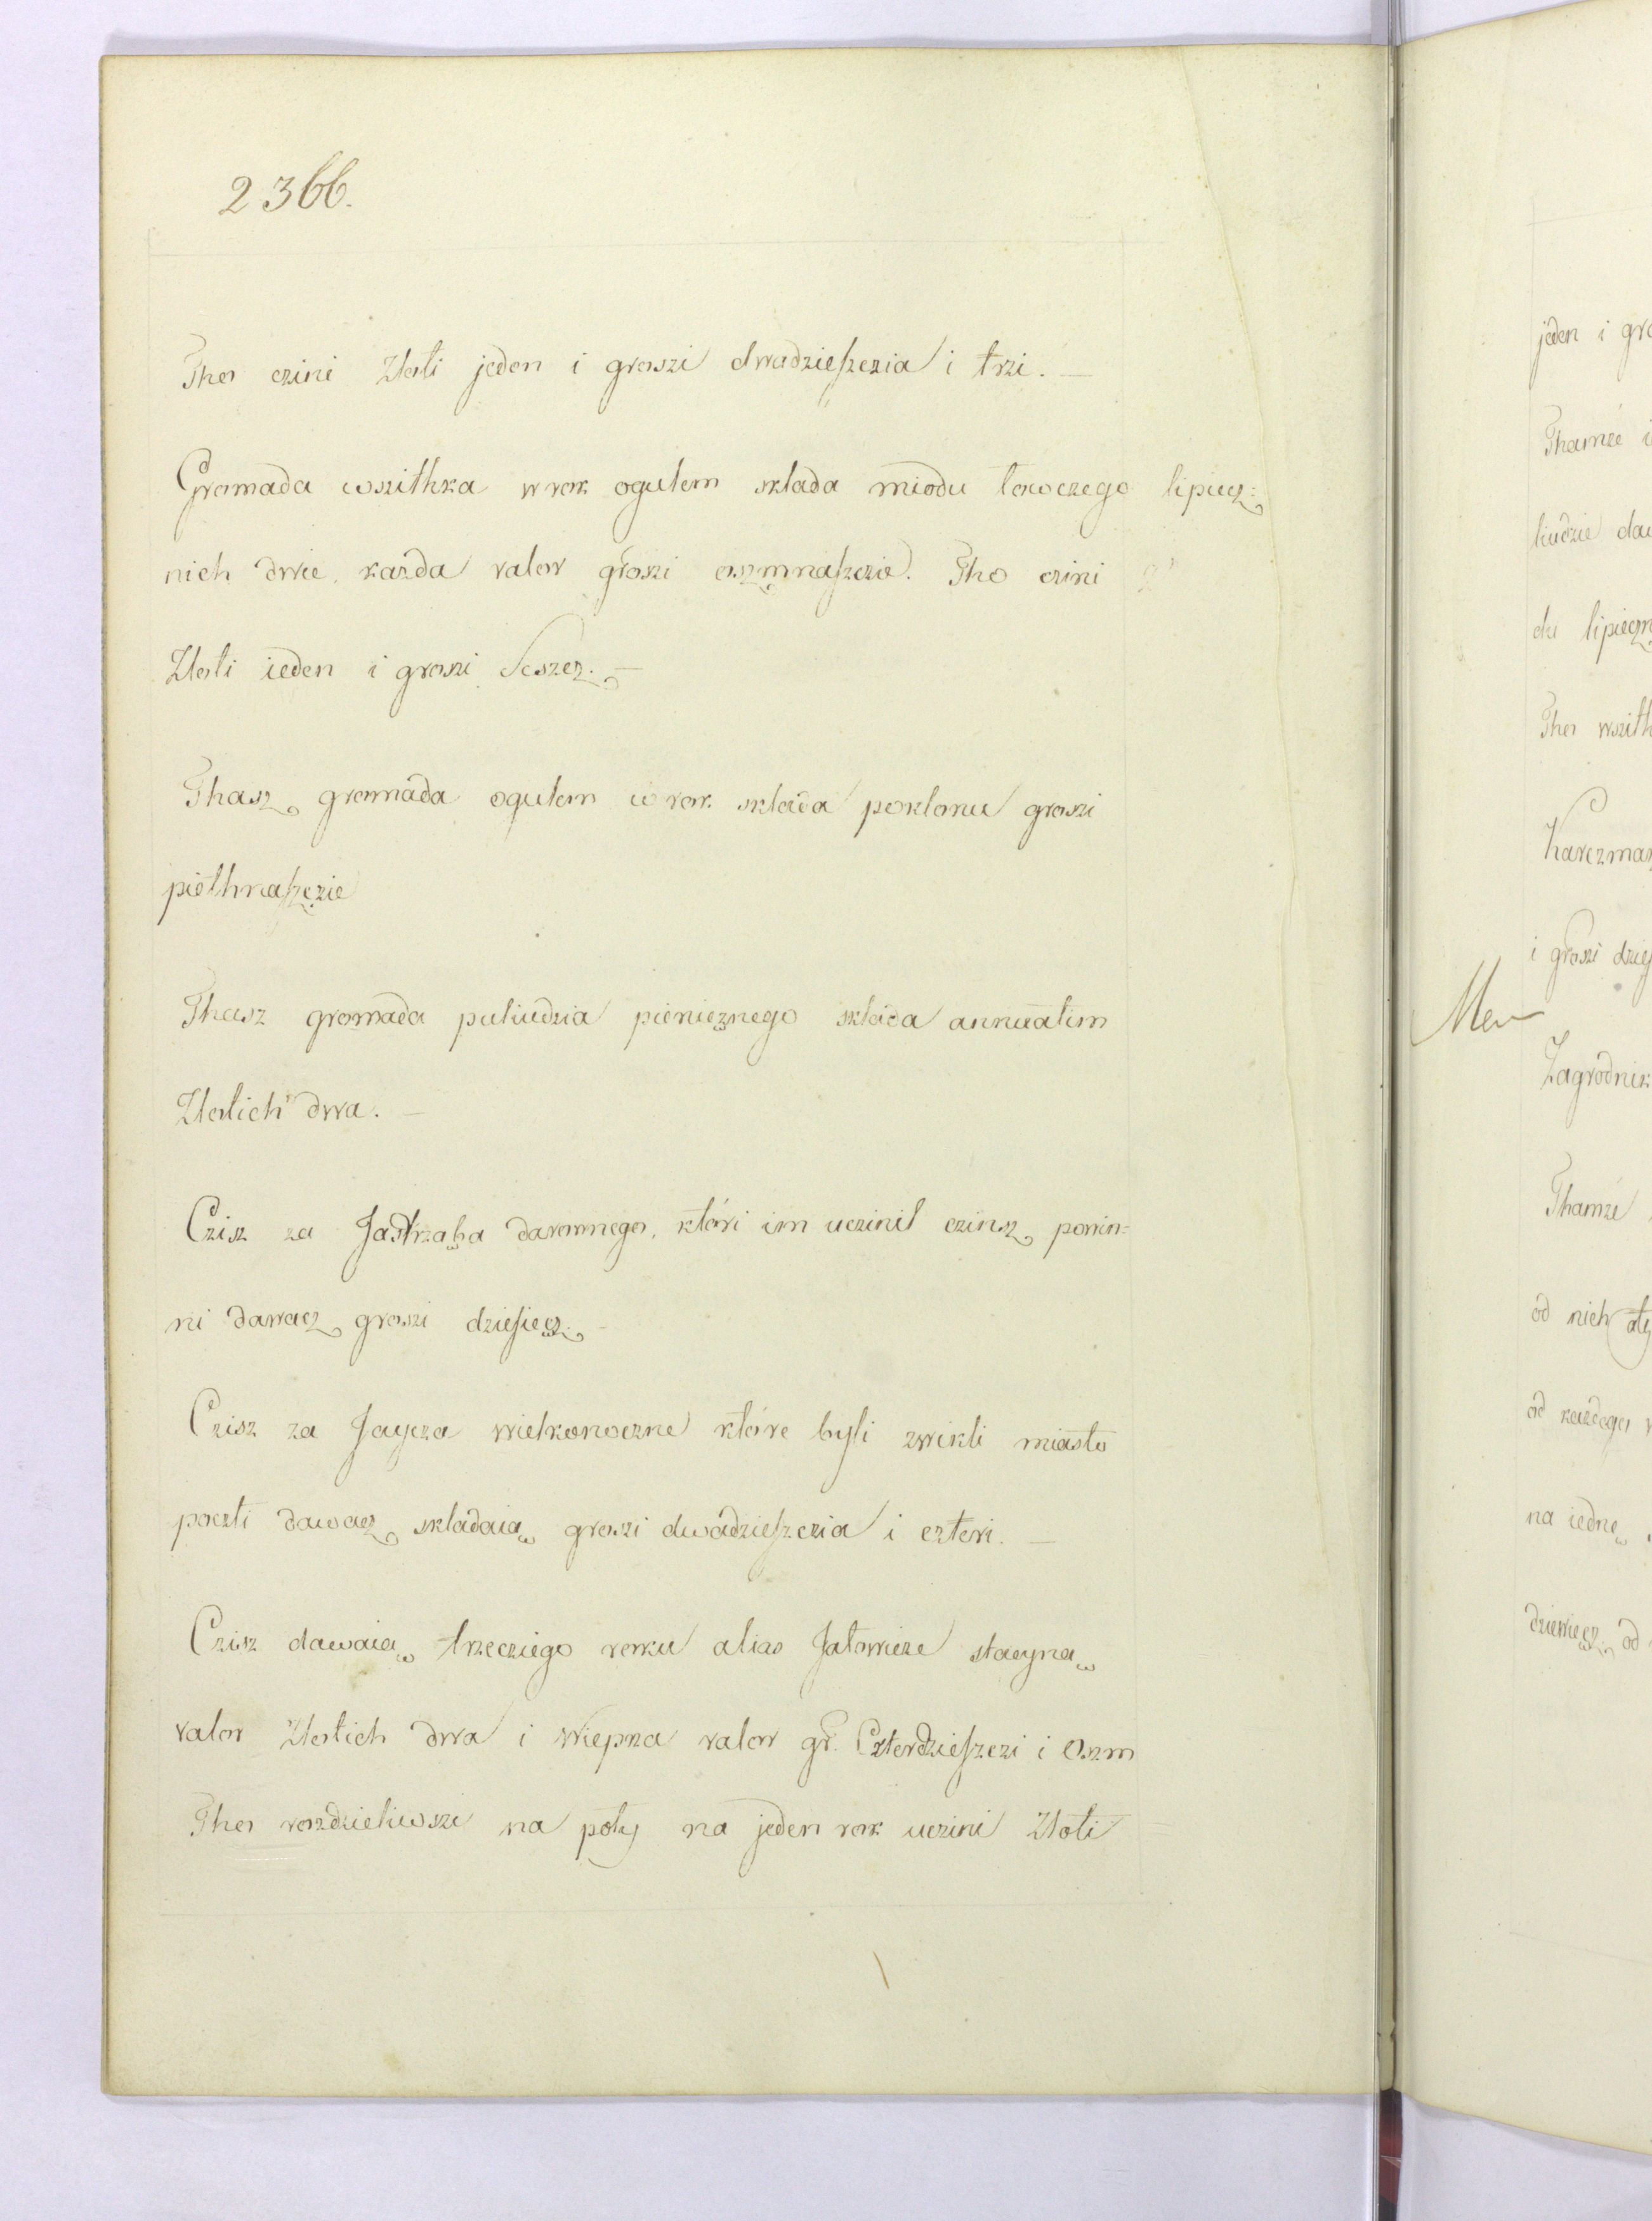 2366.
Tho czini Złoti jeden i groszi dwadzieſzczia i trzi. —
Gromada wszithka w rok ogułem składa miodu łowczego lipiecz=
nich dwie, każda valor groszi oszmnaſzczie. Tho czini
Złoti ieden i groszi Szeszcz. —
Thasz gromada ogułem w rok składa pokłonu groszi
piethnaſzczie
Thasz gromada pukludzia pienieznego składa annuatim
Złotich dwa. —
Czisz za Jastrząba darownego, któri im uczinił czinsz, powin=
ni dawacz groszi dzieſięcz. —
Czisz za Jaycza wielkonoczne które byli zwikli miasto
poczti dawacz składaią groszi dwadzieſzczia i czteri. —
Czisz dawaią trzecziego roku alias Jałowicze stacyną
valor Złotich dwa i Wieprza valor gr. Czterdzieſzczi i Oszm
Tho rozdzieliwszi na poły na jeden rok uczini Złoti
jeden i gro
Thamże i
ludzie daw
du lipieczn
Tho wszith
Karczmar
i groszi dzieſ
Zagrodnik
Thamże
od nich
od każdego
na iednę
dziewięcz od